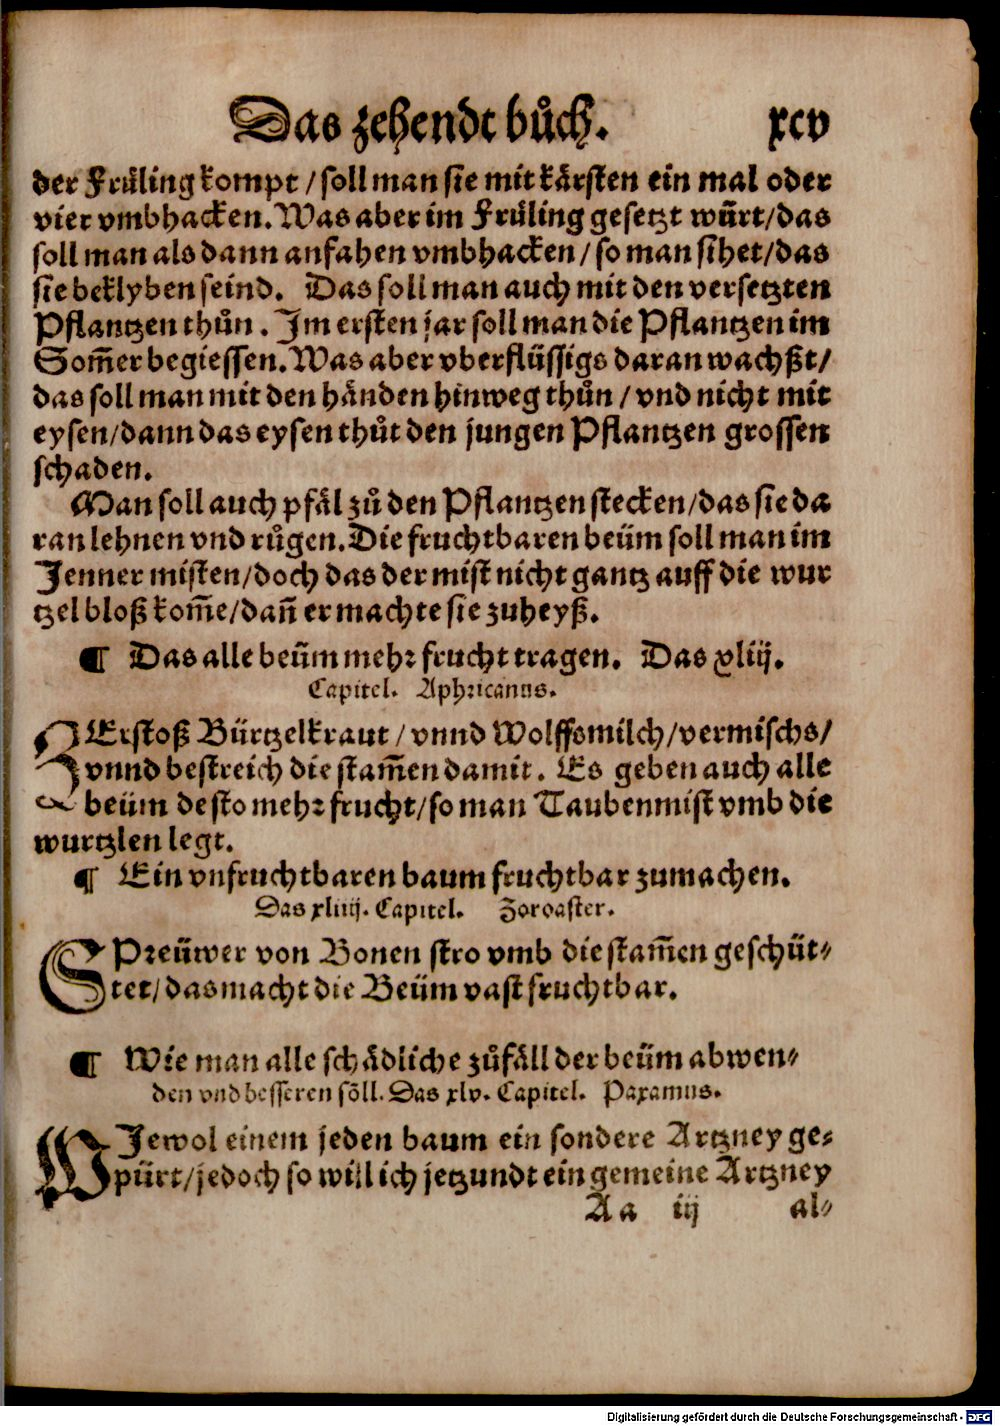 Das zehendt bůch. xcv
der Früling kompt / soll man sie mit kärsten ein mal oder
vier vmbhacken. Was aber im Früling gesetzt würt/das
soll man als dann anfahen vmbhacken / so man sihet/das
sie beklyben seind. Das soll man auch mit den versetzten
Pflantzen thůn. Im ersten jar soll man die Pflantzen im
Som̃er begiessen. Was aber vberflüssigs daran wachßt/
das soll man mit den händen hinweg thůn / vnd nicht mit
eysen/dann das eysen thůt den jungen Pflantzen grossen
schaden.
Man soll auch pfäl zů den Pflantzen stecken/das sie da
ran lehnen vnd růgen. Die fruchtbaren beüm soll man im
Jenner misten/doch das der mist nicht gantz auff die wur
tzel bloß kom̃e/dañ er machte sie zuheyß.
¶ Das alle beüm mehr frucht tragen. Das xliij.
Capitel. Aphricanus.
ZErstoß Bürtzelkraut / vnnd Wolffsmilch/vermischs/
vnnd bestreich die stam̃en damit. Es geben auch alle
beüm desto mehr frucht/so man Taubenmist vmb die
wurtzlen legt.
¶ Ein vnfruchtbaren baum fruchtbar zumachen.
Das xliiij. Capitel. Zoroaster.
SPreüwer von Bonen stro vmb die stam̃en geschüt⸗
tet/das macht die Beüm vast fruchtbar.
¶ Wie man alle schädliche zůfäll der beüm abwen⸗
den vnd besseren söll. Das xlv. Capitel. Paxamus.
WJewol einem jeden baum ein sondere Artzney ge⸗
pürt/jedoch so will ich jetzundt ein gemeine Artzney
Aa iij al⸗
Digitalisierung gefördert durch die Deutsche Forschungsgemeinschaft - DFG